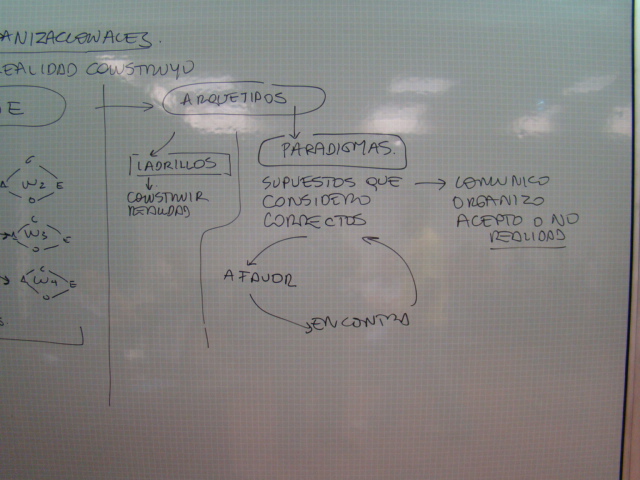 ANIZACIONALES.
REALIDAD CONSTRUYO
E
ARQUETIPOS
LADRILLOS
CONSTRUIR
REALIDAD
PARADIGMAS.
SUPUESTOS QUE
CONSIDERO
CORRECTOS
COMUNICO
ORGANIZO
ACEPTO O NO
REALIDAD
A FAVOR
EN CONTRA
C
A W2 E
O
C
A W3 E
O
C
A W4 E
O